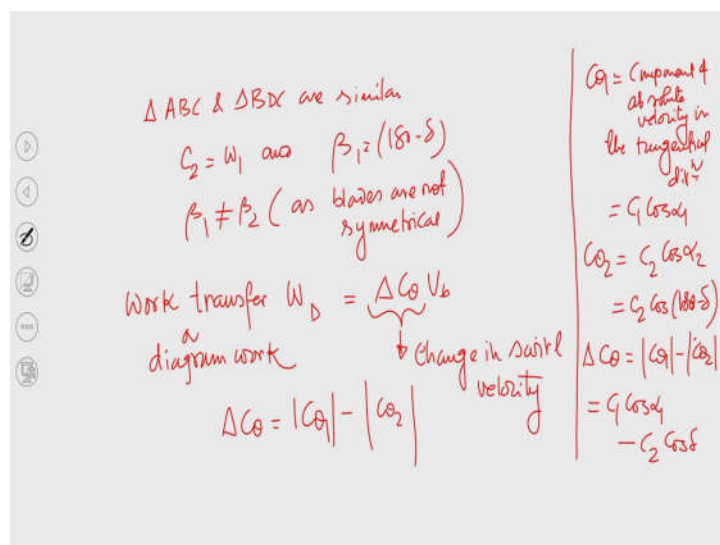 Δ ABC & ΔBDC are similar
C₂ = W₁ and β₁ = (180-δ)
β₁ ≠ β₂ ( as blades are not
symmetrical )
Work transfer W_D = ΔCθ V_b
or
diagram work
Change in swirl
velocity
ΔCθ = |Cθ₁| - |Cθ₂|
Cθ₁ = Component of
absolute
velocity in
the tangential
dirⁿ
= C₁ Cosα₁
Cθ₂ = C₂ Cosα₂
= C₂ Cos(180-δ)
ΔCθ = |Cθ₁| - |Cθ₂|
= C₁ Cosα₁
- C₂ Cosδ